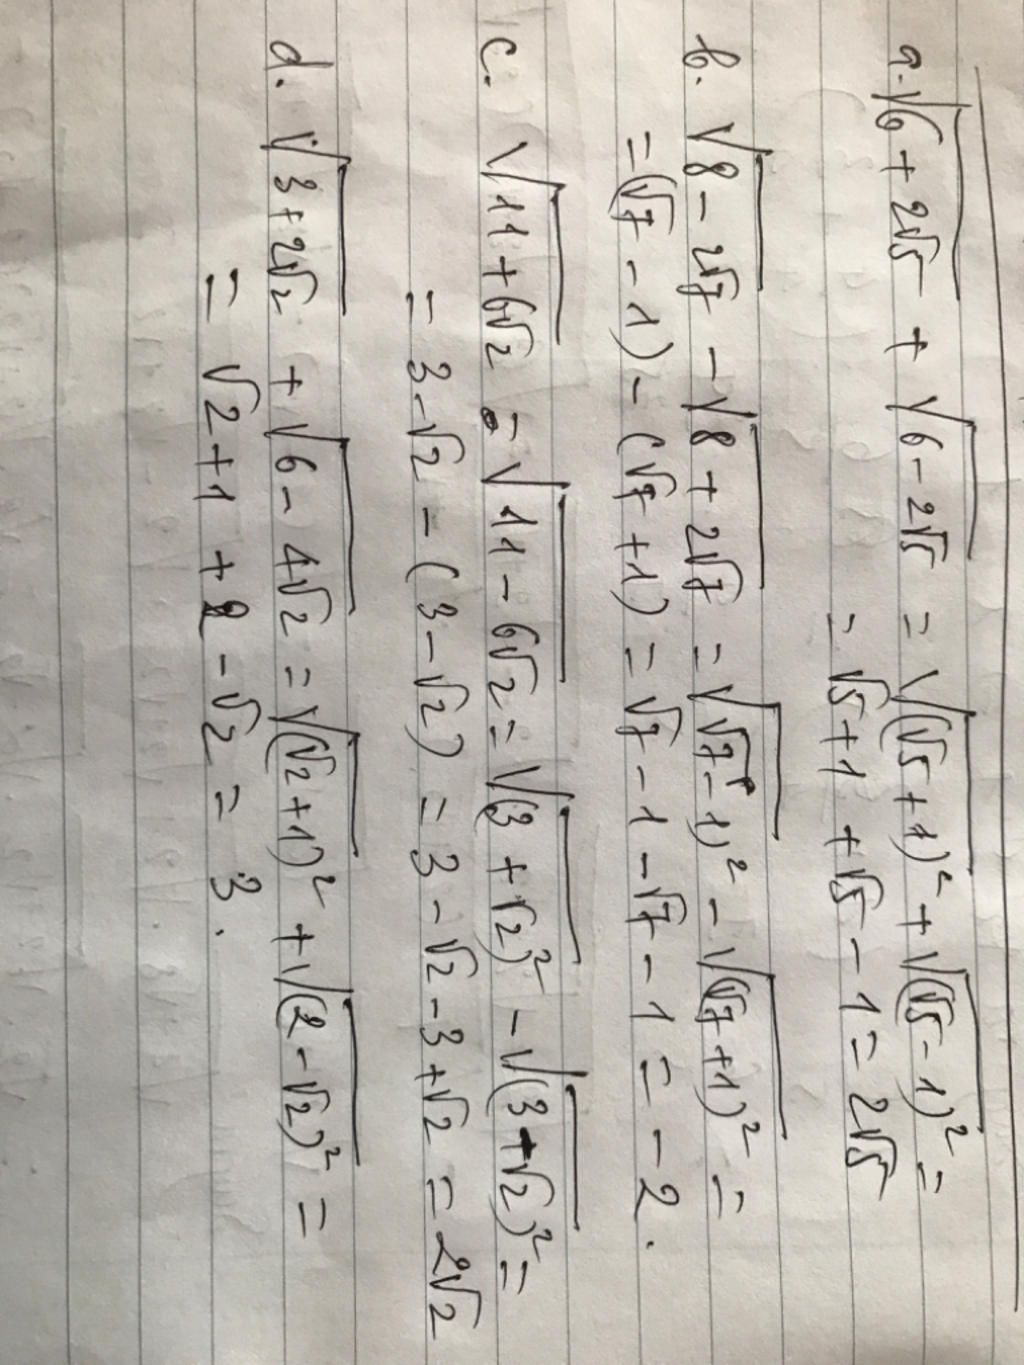 a. √(6 + 2√5) + √(6 - 2√5) = √((√5 + 1)²) + √((√5 - 1)²) =
= √5 + 1 + √5 - 1 = 2√5
b. √(8 - 2√7) - √(8 + 2√7) = √((√7 - 1)²) - √((√7 + 1)²) =
= (√7 - 1) - (√7 + 1) = √7 - 1 - √7 - 1 = - 2.
c. √(11 + 6√2) - √(11 - 6√2) = √((3 + √2)²) - √((3 - √2)²) =
= 3 - √2 - (3 - √2) = 3 - √2 - 3 + √2 = 2√2
d. √(3 + 2√2) + √(6 - 4√2) = √((√2 + 1)²) + √((2 - √2)²) =
= √2 + 1 + 2 - √2 = 3.